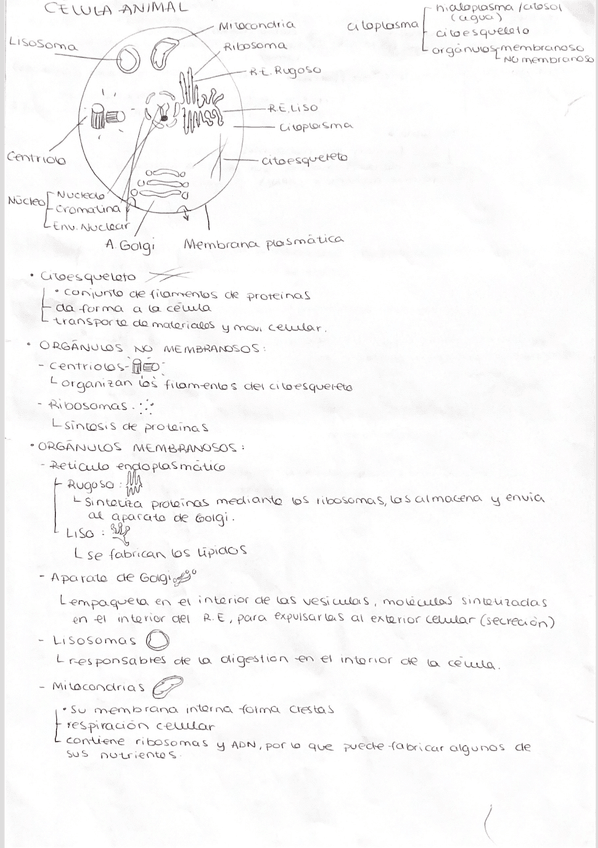 CÉLULA ANIMAL
Mitocondria
Lisosoma
Ribosoma
R.E. Rugoso
R.E. Liso
Citoplasma
Citoesqueleto
Centriolo
Núcleo
Nucleolo
Cromatina
Env. Nuclear
A. Golgi
Membrana plasmática
Citoplasma
hialoplasma/citosol
(agua)
citoesqueleto
orgánulos
membranoso
NO membranoso
• Citoesqueleto
• conjunto de filamentos de proteínas
da forma a la célula
transporte de materiales y movi. celular.
• ORGÁNULOS NO MEMBRANOSOS:
- Centriolos
organizan los filamentos del citoesqueleto
- Ribosomas
síntesis de proteínas
• ORGÁNULOS MEMBRANOSOS:
- Retículo endoplasmático
Rugoso:
Sintetiza proteínas mediante los ribosomas, las almacena y envía
al aparato de Golgi.
Liso:
se fabrican los lípidos
- Aparato de Golgi
empaqueta en el interior de las vesículas, moléculas sintetizadas
en el interior del R.E, para expulsarlas al exterior celular (secreción)
- Lisosomas
responsables de la digestión en el interior de la célula.
- Mitocondrias
• Su membrana interna forma crestas
respiración celular
contiene ribosomas y ADN, por lo que puede fabricar algunos de
sus nutrientes.